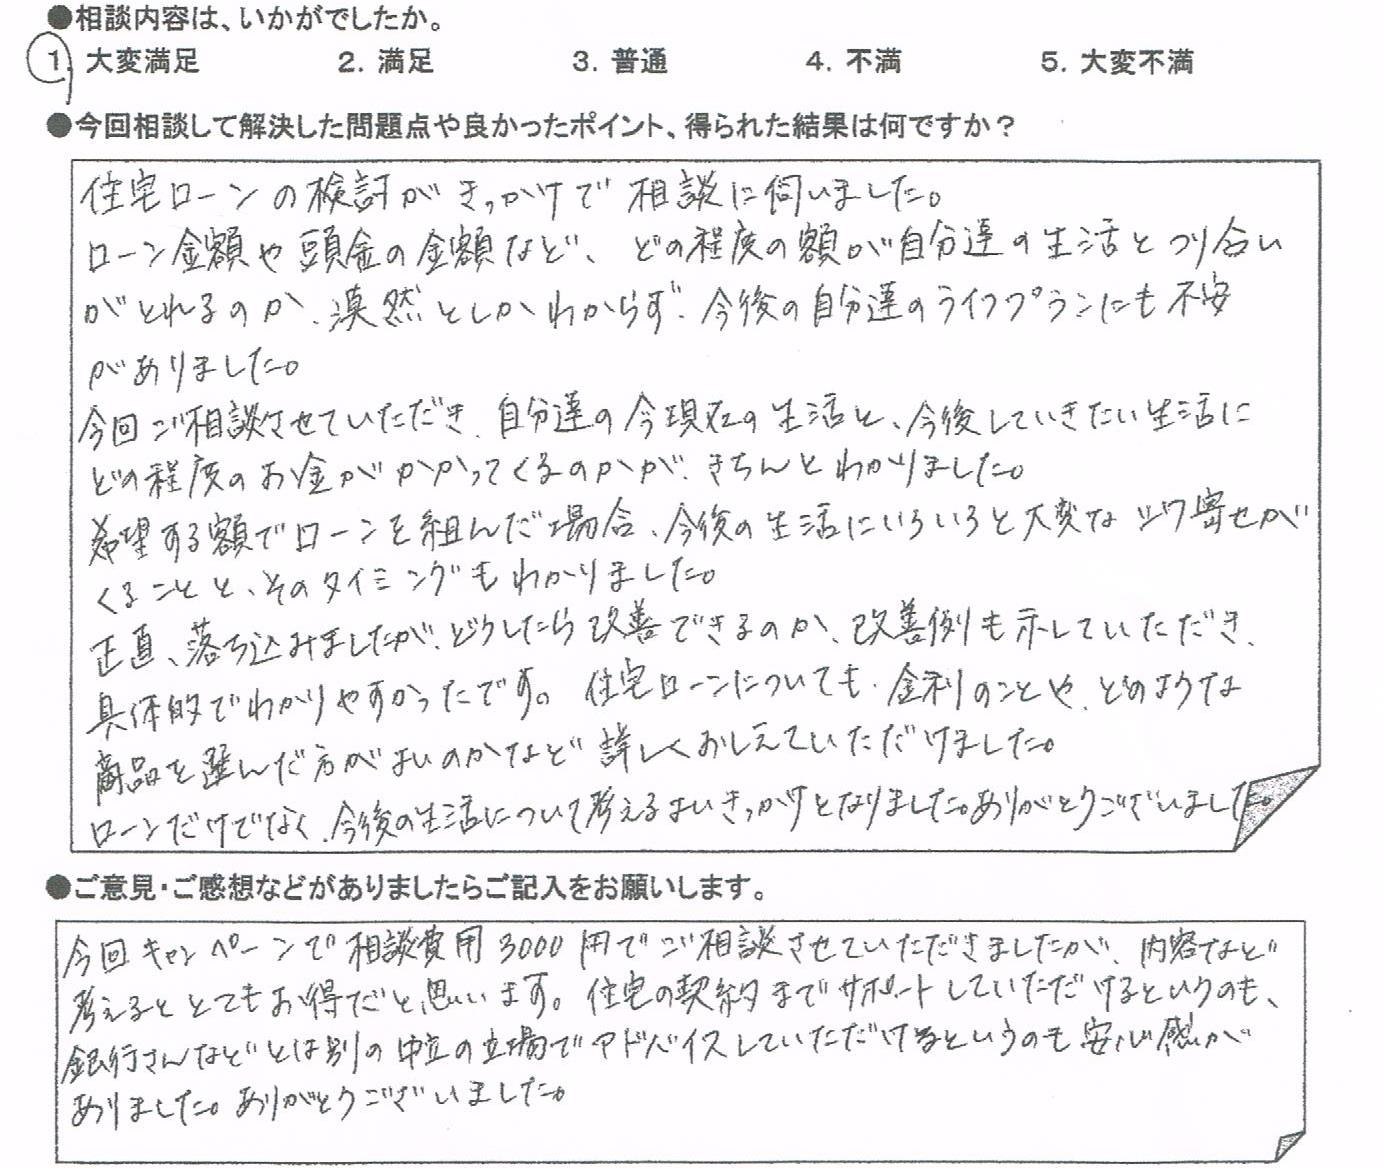 ●相談内容は、いかがでしたか。
1. 大変満足 2. 満足 3. 普通 4. 不満 5. 大変不満
●今回相談して解決した問題点や良かったポイント、得られた結果は何ですか？
住宅ローンの検討がきっかけで相談に伺いました。
ローン金額や頭金の金額など、どの程度の額が自分達の生活とつり合い
がとれるのか、漠然としかわからず、今後の自分達のライフプランにも不安
がありました。
今回ご相談させていただき、自分達の今現在の生活と、今後していきたい生活に
どの程度のお金がかかってくるのかが、きちんとわかりました。
希望する額でローンを組んだ場合、今後の生活にいろいろと大変なシワ寄せが
くることと、そのタイミングもわかりました。
正直、落ち込みましたが、どうしたら改善できるのか、改善例も示していただき、
具体的でわかりやすかったです。住宅ローンについても、金利のことや、どのような
商品を選んだ方がよいのかなど詳しくおしえていただけました。
ローンだけでなく、今後の生活について考えるよいきっかけとなりました。ありがとうございました。
●ご意見・ご感想などがありましたらご記入をお願いします。
今回キャンペーンで相談費用3000円でご相談させていただきましたが、内容など
考えるととてもお得だと思います。住宅の契約までサポートしていただけるというのも、
銀行さんなどとは別の中立の立場でアドバイスしていただけるというのも安心感が
ありました。ありがとうございました。